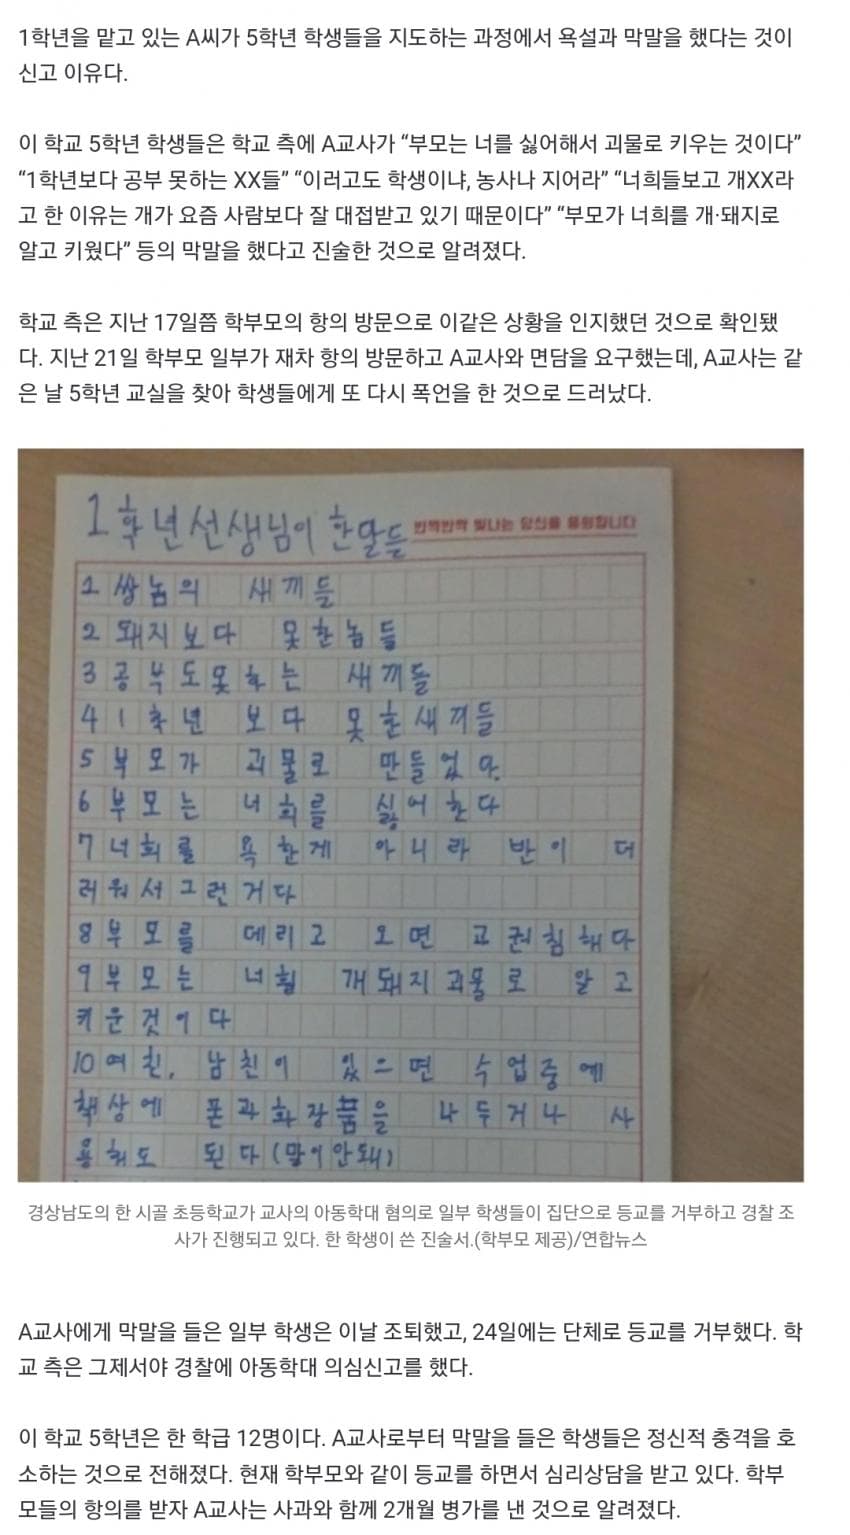 1학년을 맡고 있는 A씨가 5학년 학생들을 지도하는 과정에서 욕설과 막말을 했다는 것이
신고 이유다.
이 학교 5학년 학생들은 학교 측에 A교사가 “부모는 너를 싫어해서 괴물로 키우는 것이다”
“1학년보다 공부 못하는 XX들” “이러고도 학생이냐, 농사나 지어라” “너희들보고 개XX라
고 한 이유는 개가 요즘 사람보다 잘 대접받고 있기 때문이다” “부모가 너희를 개·돼지로
알고 키웠다” 등의 막말을 했다고 진술한 것으로 알려졌다.
학교 측은 지난 17일쯤 학부모의 항의 방문으로 이같은 상황을 인지했던 것으로 확인됐
다. 지난 21일 학부모 일부가 재차 항의 방문하고 A교사와 면담을 요구했는데, A교사는 같
은 날 5학년 교실을 찾아 학생들에게 또 다시 폭언을 한 것으로 드러났다.
1학년선생님이 한말들 반짝반짝 빛나는 당신을 응원합니다
1 쌍놈의 새끼들
2 돼지보다 못한놈들
3 공부도못하는 새끼들
4 1학년 보다 못한새끼들
5 부모가 괴물로 만들었어.
6 부모는 너희를 싫어한다
7 너희를 욕한게 아니라 반이 더
러워서그런거다
8 부모를 데리고 오면 교권침해다
9 부모는 너흴 개돼지괴물로 알고
키운것이다
10 여친, 남친이 있으면 수업중에
책상에 폰과화장품을 나두거나 사
용해도 된다(말이안돼)
경상남도의 한 시골 초등학교가 교사의 아동학대 혐의로 일부 학생들이 집단으로 등교를 거부하고 경찰 조
사가 진행되고 있다. 한 학생이 쓴 진술서.(학부모 제공)/연합뉴스
A교사에게 막말을 들은 일부 학생은 이날 조퇴했고, 24일에는 단체로 등교를 거부했다. 학
교 측은 그제서야 경찰에 아동학대 의심신고를 했다.
이 학교 5학년은 한 학급 12명이다. A교사로부터 막말을 들은 학생들은 정신적 충격을 호
소하는 것으로 전해졌다. 현재 학부모와 같이 등교를 하면서 심리상담을 받고 있다. 학부
모들의 항의를 받자 A교사는 사과와 함께 2개월 병가를 낸 것으로 알려졌다.